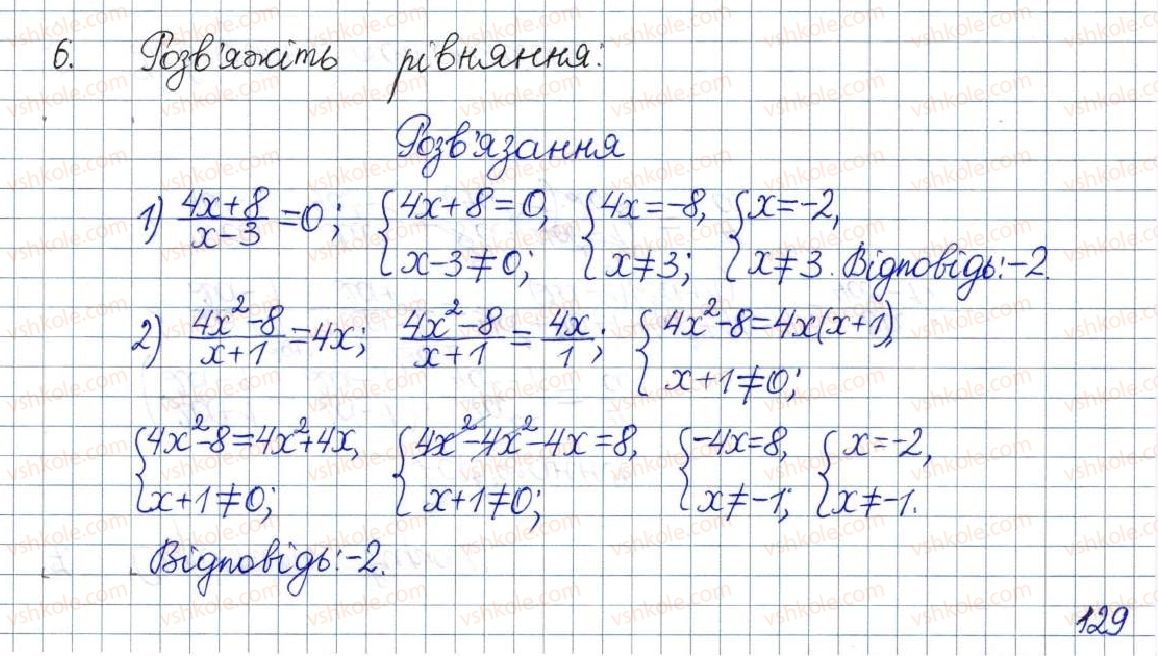 6. Розв'яжіть рівняння:
Розв'язання
1) (4x+8)/(x-3) = 0; { 4x+8=0, x-3≠0; { 4x=-8, x≠3; { x=-2, x≠3. Відповідь: -2.
2) (4x²-8)/(x+1) = 4x; (4x²-8)/(x+1) = 4x/1; { 4x²-8=4x(x+1), x+1≠0;
{ 4x²-8=4x²+4x, x+1≠0; { 4x²-4x²-4x=8, x+1≠0; { -4x=8, x≠-1; { x=-2, x≠-1.
Відповідь: -2.
129
vshkole.com